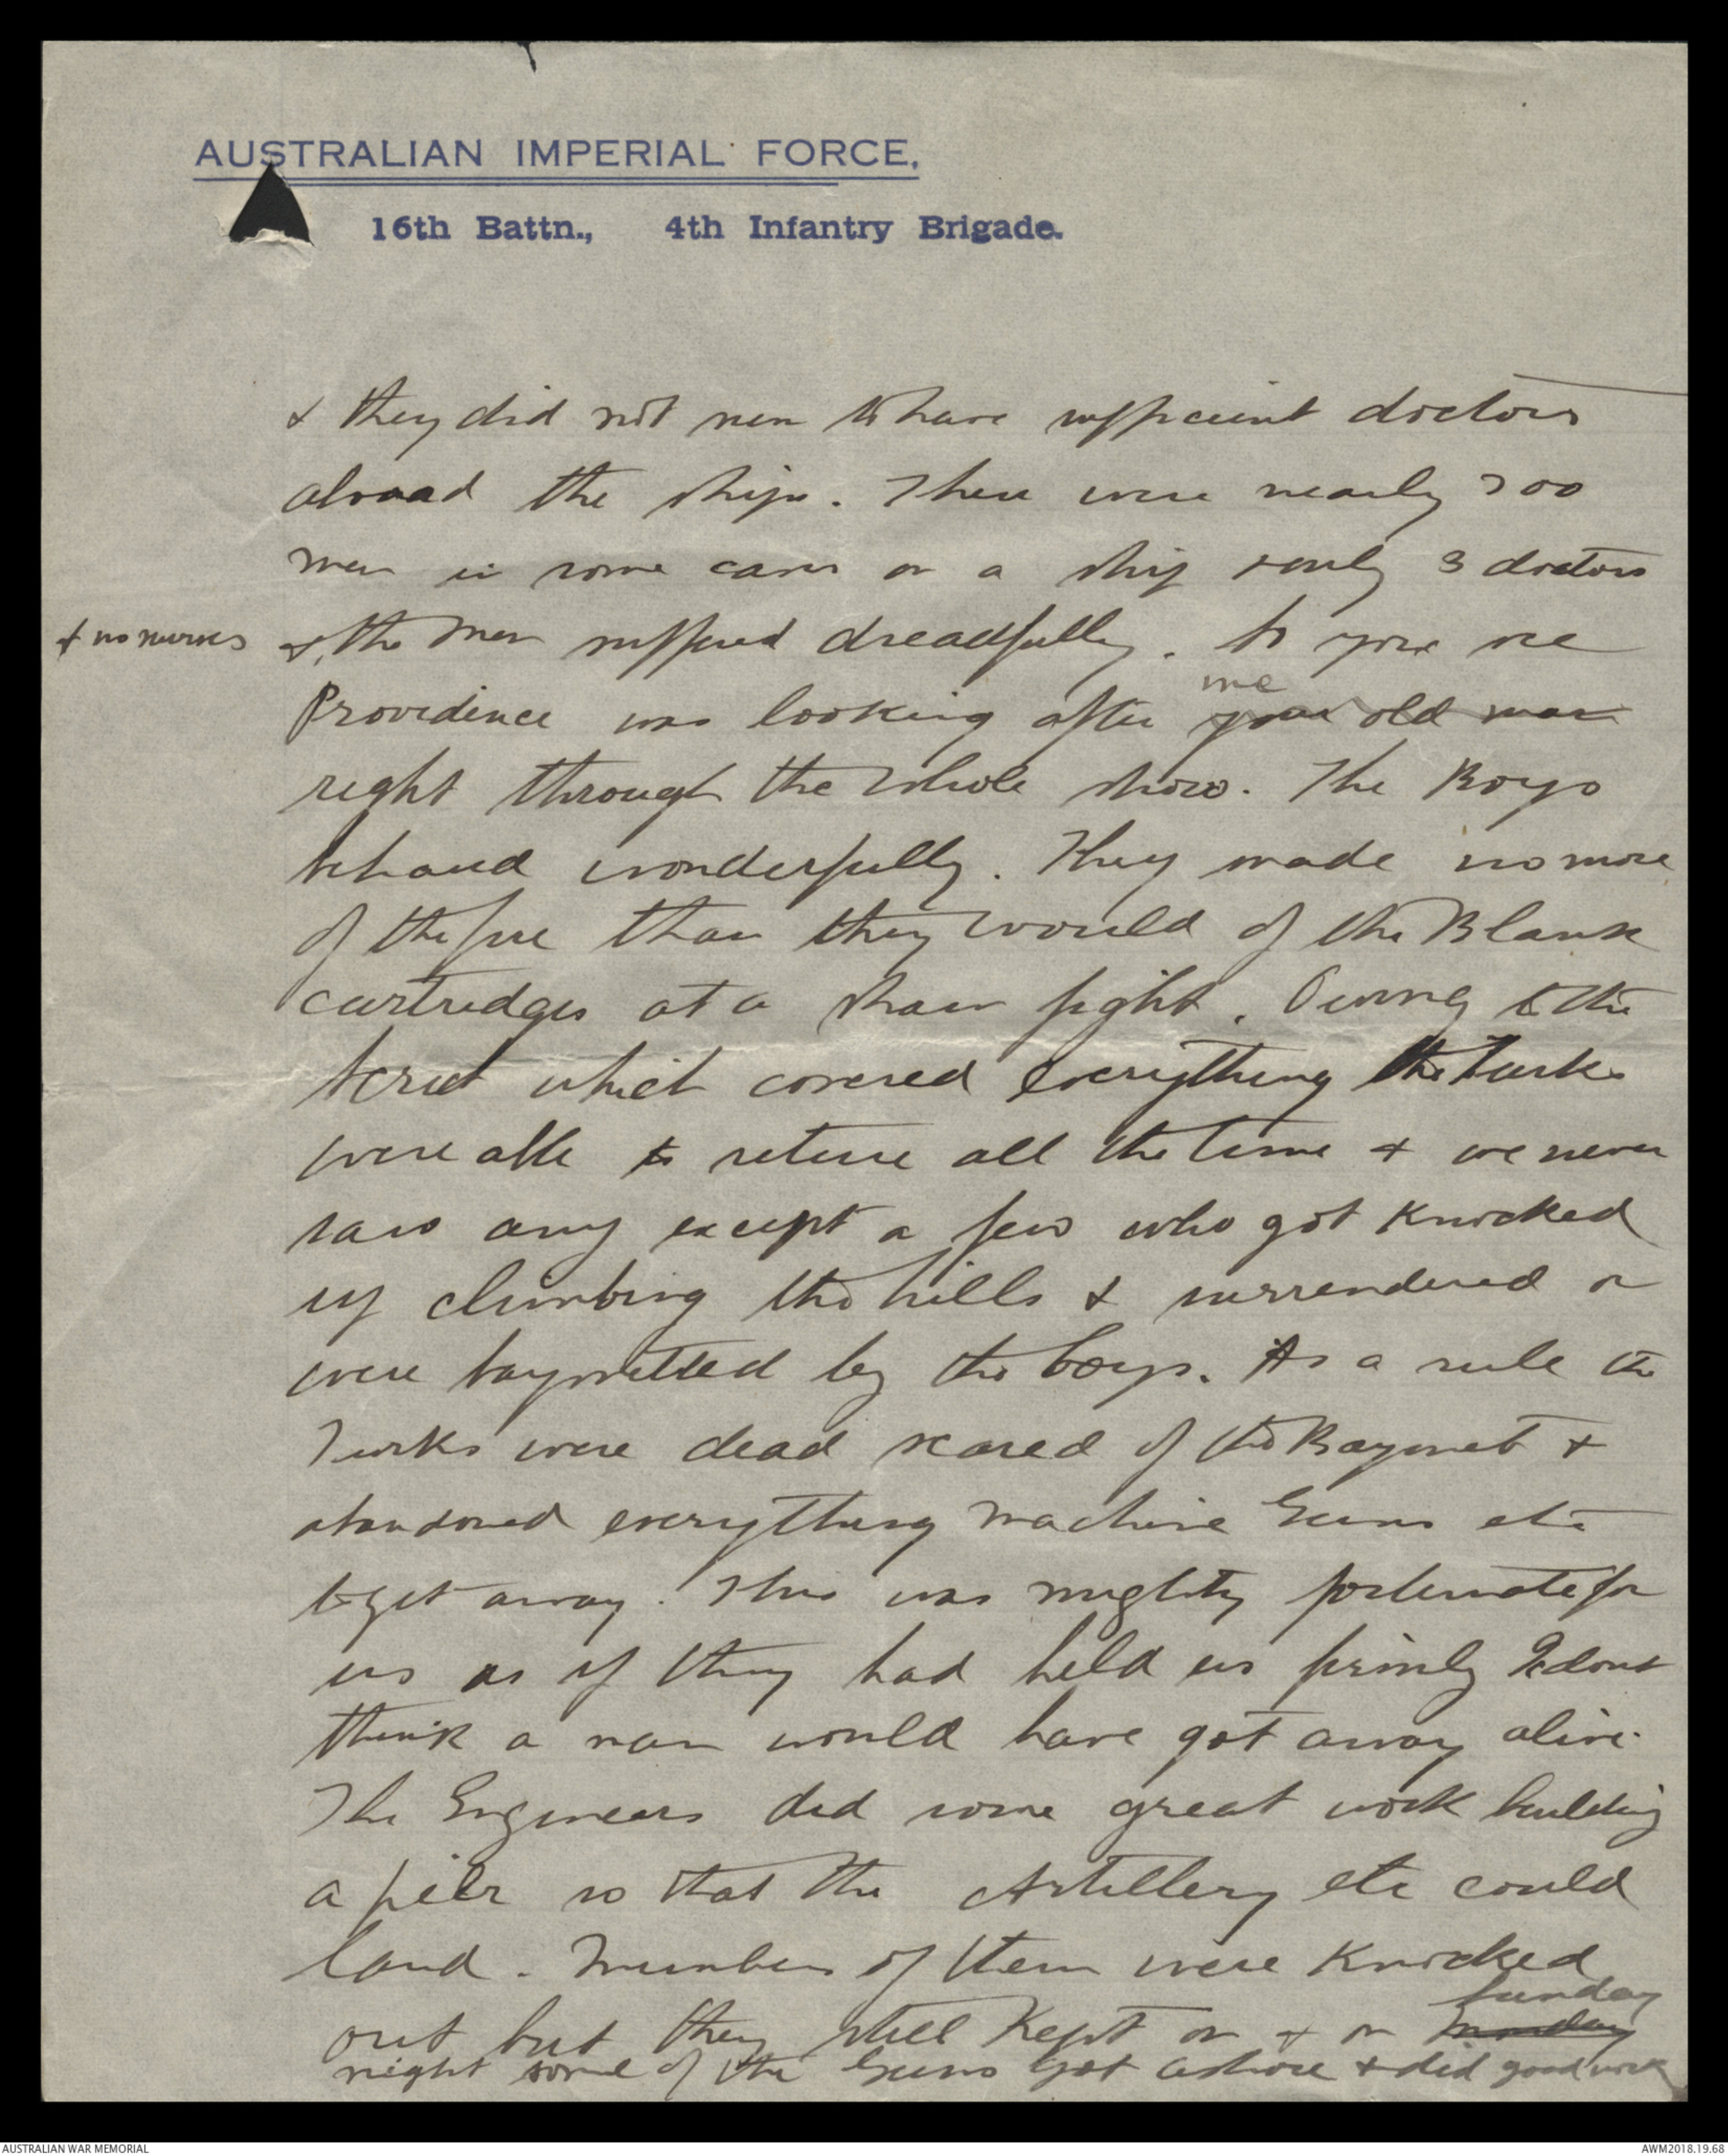 AUSTRALIAN IMPERIAL FORCE.
16th Battn., 4th Infantry Brigade.
& they did not seem to have sufficient doctors
aboard the ships. There were nearly 700
men in some cases on a ship & only 3 doctors
& no nurses & the men suffered dreadfully. So you see
me
Providence was looking after your old man
right through the whole show. The Boys
behaved wonderfully. They made no more
of the fire than they would of the Blank
cartridges at a sham fight. Owing to the
scrub which covered everything the Turks
were able to retire all the time & we never
saw any except a few who got knocked
up climbing the hills & surrendered or
were bayonetted by the boys. As a rule the
Turks were dead scared of the Bayonet &
abandoned everything machine Guns etc
to get away. This was mighty fortunate for
us as if they had held us firmly I dont
think a man would have got away alive.
The Engineers did some great work building
a pier so that the Artillery etc could
land. Numbers of them were knocked
Sunday
out but they still kept on & on Monday
night some of the Guns got ashore & did good work
AUSTRALIAN WAR MEMORIAL
AWM2018.19.68